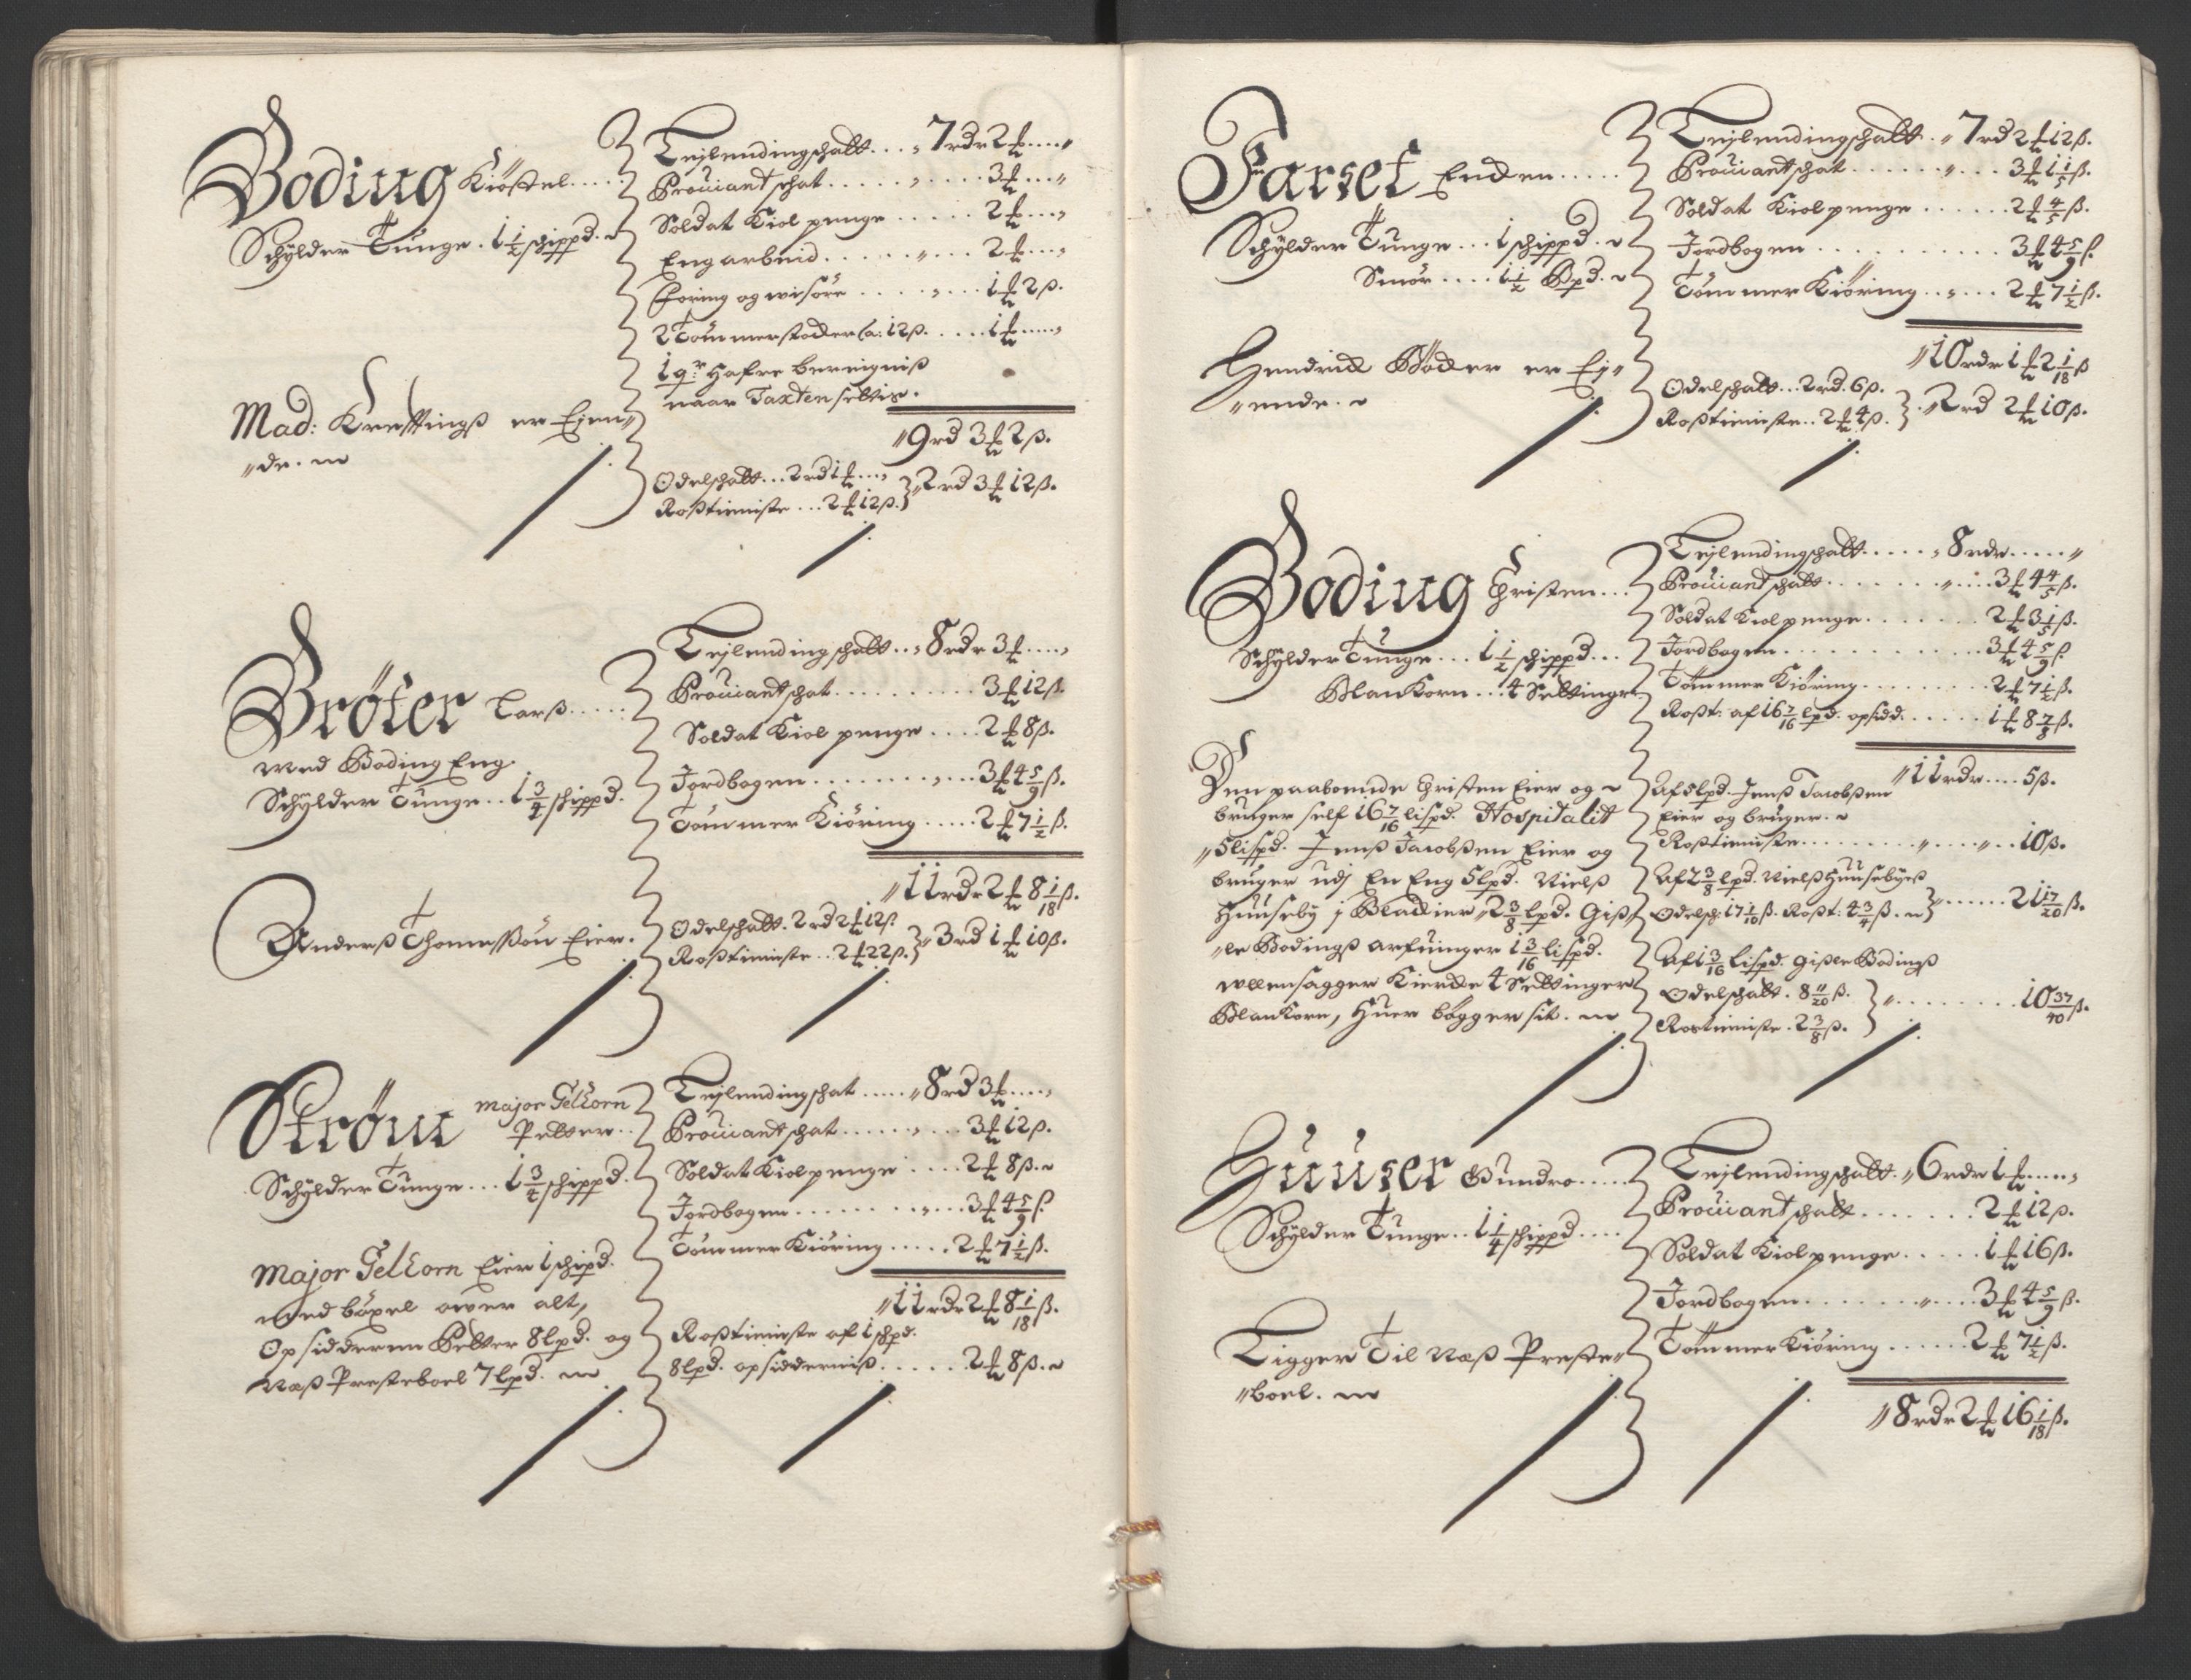 Boding Kiøstel....
Schÿlder Tunge. 1 1/2 schippd.
Mad: Krefftings er Eien
de.
Lejlendingschatt... 7 rdr 2 ℔....
Proviantschat..... 3 ℔...
Soldat Kiol penge..... 2 ℔...
Engarbeid...... 2 ℔...
Foring og wisøre..... 1 ℔ 2 ß.
2 Tømmerstocker a: 12 ß..... 1 ℔....
1 qr: Hafre bereigniß
naar Taxten settis.
9 rd 3 ℔ 2 ß.
Odelschatt... 2 rd 1 ℔...
Roßtieniste... 2 ℔ 12 ß. } 2 rd 3 ℔ 12 ß.
Brøter Larß.....
med Boding Eng.
Schÿlder Tunge.. 1 3/4 schippd.
Anderß Thomeßøn Eier.
Lejlendingschatt.. 8 rdr 3 ℔....
Proviantschat.......... 3 ℔ 12 ß.
Soldat Kiol penge.... 2 ℔ 8 ß.
Jordbogen........... 3 ℔ 4 5/9 ß.
Tømmer Kiøring..... 2 ℔ 7 1/2 ß.
11 rdr 2 ℔ 8 1/18 ß.
Odelschatt. 2 rd 2 ℔ 12 ß.
Roßtieniste.. 2 ℔ 22 ß. } 3 rd 1 ℔ 10 ß.
Strøm Major Gelkorn
Petter..
Schÿlder Tunge... 1 3/4 schippd.
Major Gelkorn Eier 1 schipd.
med bøxel ower alt,
Opsidderen Petter 8 lpd. og
Næß Presteboel 7 lpd.
Lejlendingschat..... 8 rd 3 ℔....
Proviantschat......... 3 ℔ 12 ß.
Soldat Kiolpenge.... 2 ℔ 8 ß.
Jordbogen........... 3 ℔ 4 5/9 ß
Tømmer Kiøring..... 2 ℔ 7 1/2 ß.
11 rdr 2 ℔ 8 1/18 ß.
Roßtieniste af 1 schpd.
8 lpd. opsidderniß...... 2 ℔ 8 ß.
Farset Enden.....
Schÿlder Tunge... 1 schippd.
Smør.... 1 1/2 Bpd.
Hendrick Bøcker er Ej
ende.
Lejlendingschatt.. 7 rd 2 ℔ 12 ß.
Proviantschat......... 3 ℔ 1 1/5 ß.
Soldat Kiolpenge...... 2 ℔ 4/5 ß.
Jordbogen............ 3 ℔ 4 5/9 ß.
Tømmer Kiøring..... 2 ℔ 7 1/2 ß.
10 rdr 1 ℔ 2 1/18 ß
Odelschatt... 2 rd. 6 ß.
Roßtieniste.. 2 ℔ 4 ß. } 2 rd 2 ℔ 10 ß.
Boding Christen...
Schÿlder Tunge... 1 1/2 schippd...
Blankorn... 4 Settinger
Den paaboende Christen Eier og
bruger self 16 7/16 lispd. Hospitalit
5 lispd. Jenß Jacobßen Eier og
bruger udj En Eng 5 lpd. Nielß
Huuseby i Blackier 2 3/8 lpd. Giß
le Bodings Arfuinger 1 3/16 lispd.
Ullensagger Kiercke 4 Settinger
Blankorn, Huer bøgger sit.
Lejlendingschatt..... 8 rdr.....
Proviantschatt......... 3 ℔ 4 4/5 ß.
Soldat Kiolpenge....... 2 ℔ 3 1/5 ß.
Jordbogen............. 3 ℔ 4 5/9 ß
Tømmer Kiøring......... 2 ℔ 7 1/2 ß.
Roßt: af 16 7/16 lpd. opsidd...... 1 ℔ 8 7/8 ß.
11 rdr.... 5 ß.
Af 5 lpd. Jenß Jacobßen
Eier og bruger.
Roßtieniste............. 10 ß.
Af 2 3/8 lpd. Nielß Huusebyes
Odelsch: 17 1/10 ß. Roßt: 4 3/4 ß. }....... 21 17/20 ß.
Af 1 3/16 lispd. Gißle Bodings
Odelschatt. 8 11/20 ß.
Rostieniste. 2 3/8 ß. }......... 10 37/40 ß.
Huuser Gundro.....
Schÿlder Tunge.. 1 1/4 schippd....
Ligger Til Næß Preste
boel.
Lejlendingschatt. 6 rdr 1 ℔.....
Proviantschatt....... 2 ℔ 12 ß.
Soldat Kiolpenge..... 1 ℔ 16 ß.
Jordbogen........... 3 ℔ 4 5/9 ß.
Tømmer Kiøring...... 2 ℔ 7 1/2 ß.
8 rdr 2 ℔ 16 1/18 ß.